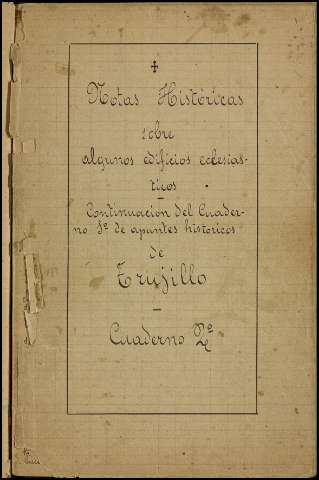 Notas Históricas
sobre
algunos edificios eclesias-
ticos
Continuación del Cuader-
no 1º de apuntes historicos
de
Trujillo
Cuaderno 2º